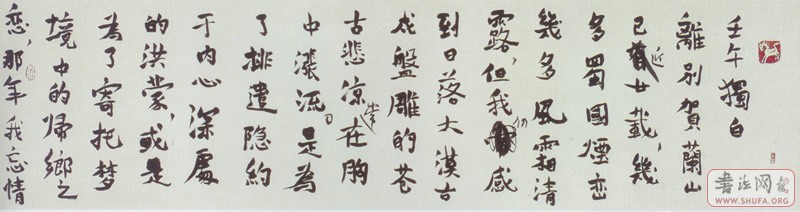 壬午獨白
離别賀蘭山
已近廿載,幾
多蜀國煙巒
幾多風霜清
露,但我仍感
到日落大漠古
戍盤雕的苍
古悲凉在胸
中漲流。是为
了排遣隐約
于内心深處
的洪蒙,或是
為了寄托梦
境中的歸鄉之
恋,那年我忘情
WWW.SHUFA.ORG